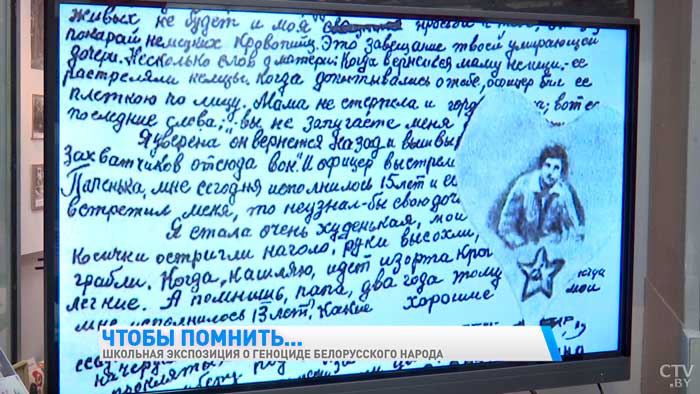 живых не будет и моя
покарай немецких кровопийц. Это завещание твоей умирающей
дочери. Несколько слов о матери: Когда вернешься, маму не ищи,
растреляли немцы. Когда допытывались о тебе, офицер бил ее
плеткою по лицу. Мама не стерпела и горд вот ее
последние слова: „Вы не запугаете меня
Я уверена он вернется назад и вышвы
Захватчиков отсюда вон." И офицер выстрел
Папенька, мне сегодня исполнилось 15 лет и ес
встретил меня, то неузнал-бы свою доч
Я стала очень худенькая, мои
Косички остригли наголо, руки высохли,
грабли. Когда я кашляю, идет изорта кро
легкие. А помнишь, папа, два года тому
мне исполнилось 13 лет. Какие хорошие мои
ЧТОБЫ ПОМНИТЬ...
ШКОЛЬНАЯ ЭКСПОЗИЦИЯ О ГЕНОЦИДЕ БЕЛОРУССКОГО НАРОДА
CTV
.BY